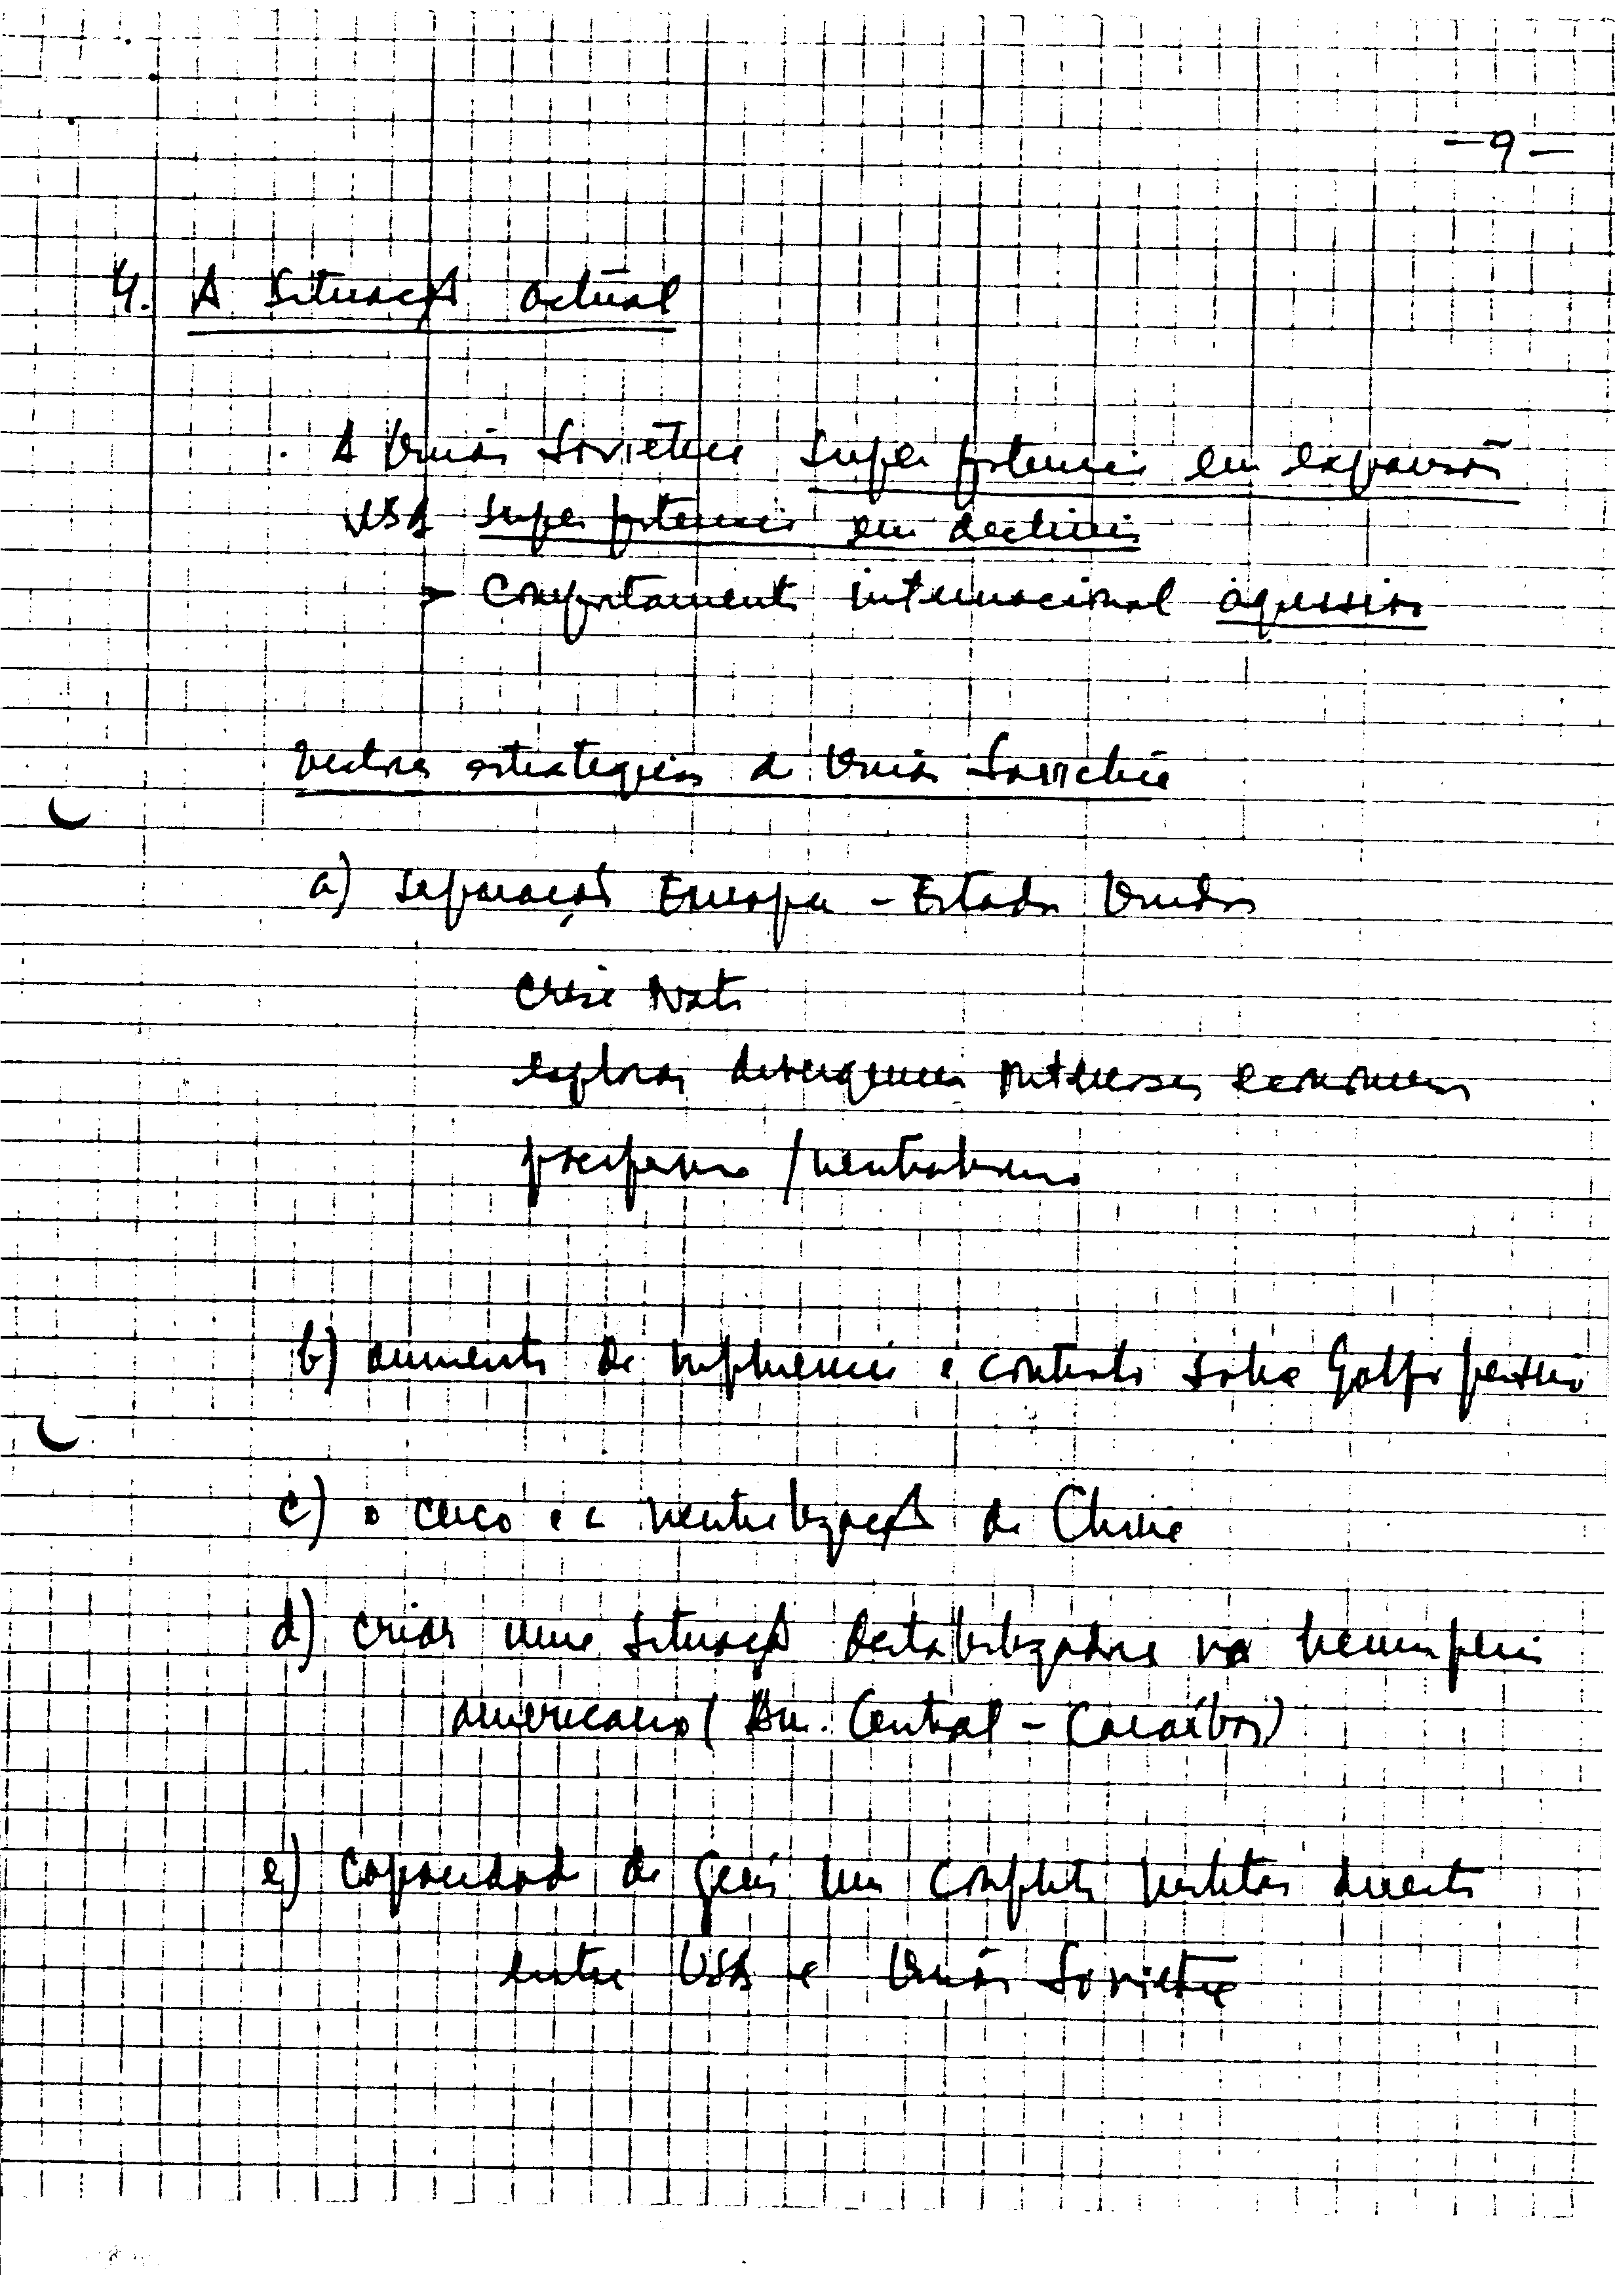 -9-
4. A situação actual
. A União Soviética super potencia em expansão
USA super potencia em declinio
> Comportamento internacional agressivo
Vectores estratégicos da União Soviética
a) separação Europa - Estados Unidos
crise Nato
explorar divergencias interesses economicos
pacifismo / neutralismo
b) aumento da influencia e controlo sobre Golfo persico
c) o cerco e a neutralização da China
d) criar uma situação destabilizadora no hemisferio
americano (Am. Central - Caraíbas)
e) capacidade de gerir um conflito militar directo
entre USA e União Soviética